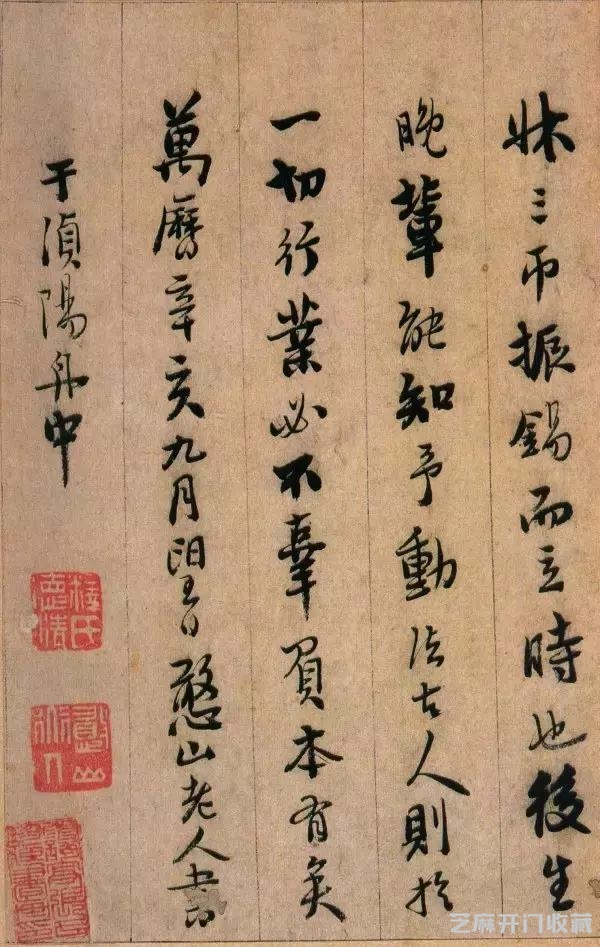 牀三帀振錫而立時也後生
晚輩能知予動法古人則於
一切行業必不辜負本有矣
萬曆辛亥九月望日憨山老人書
于湞陽舟中
德清
憨山
芝麻开门收藏